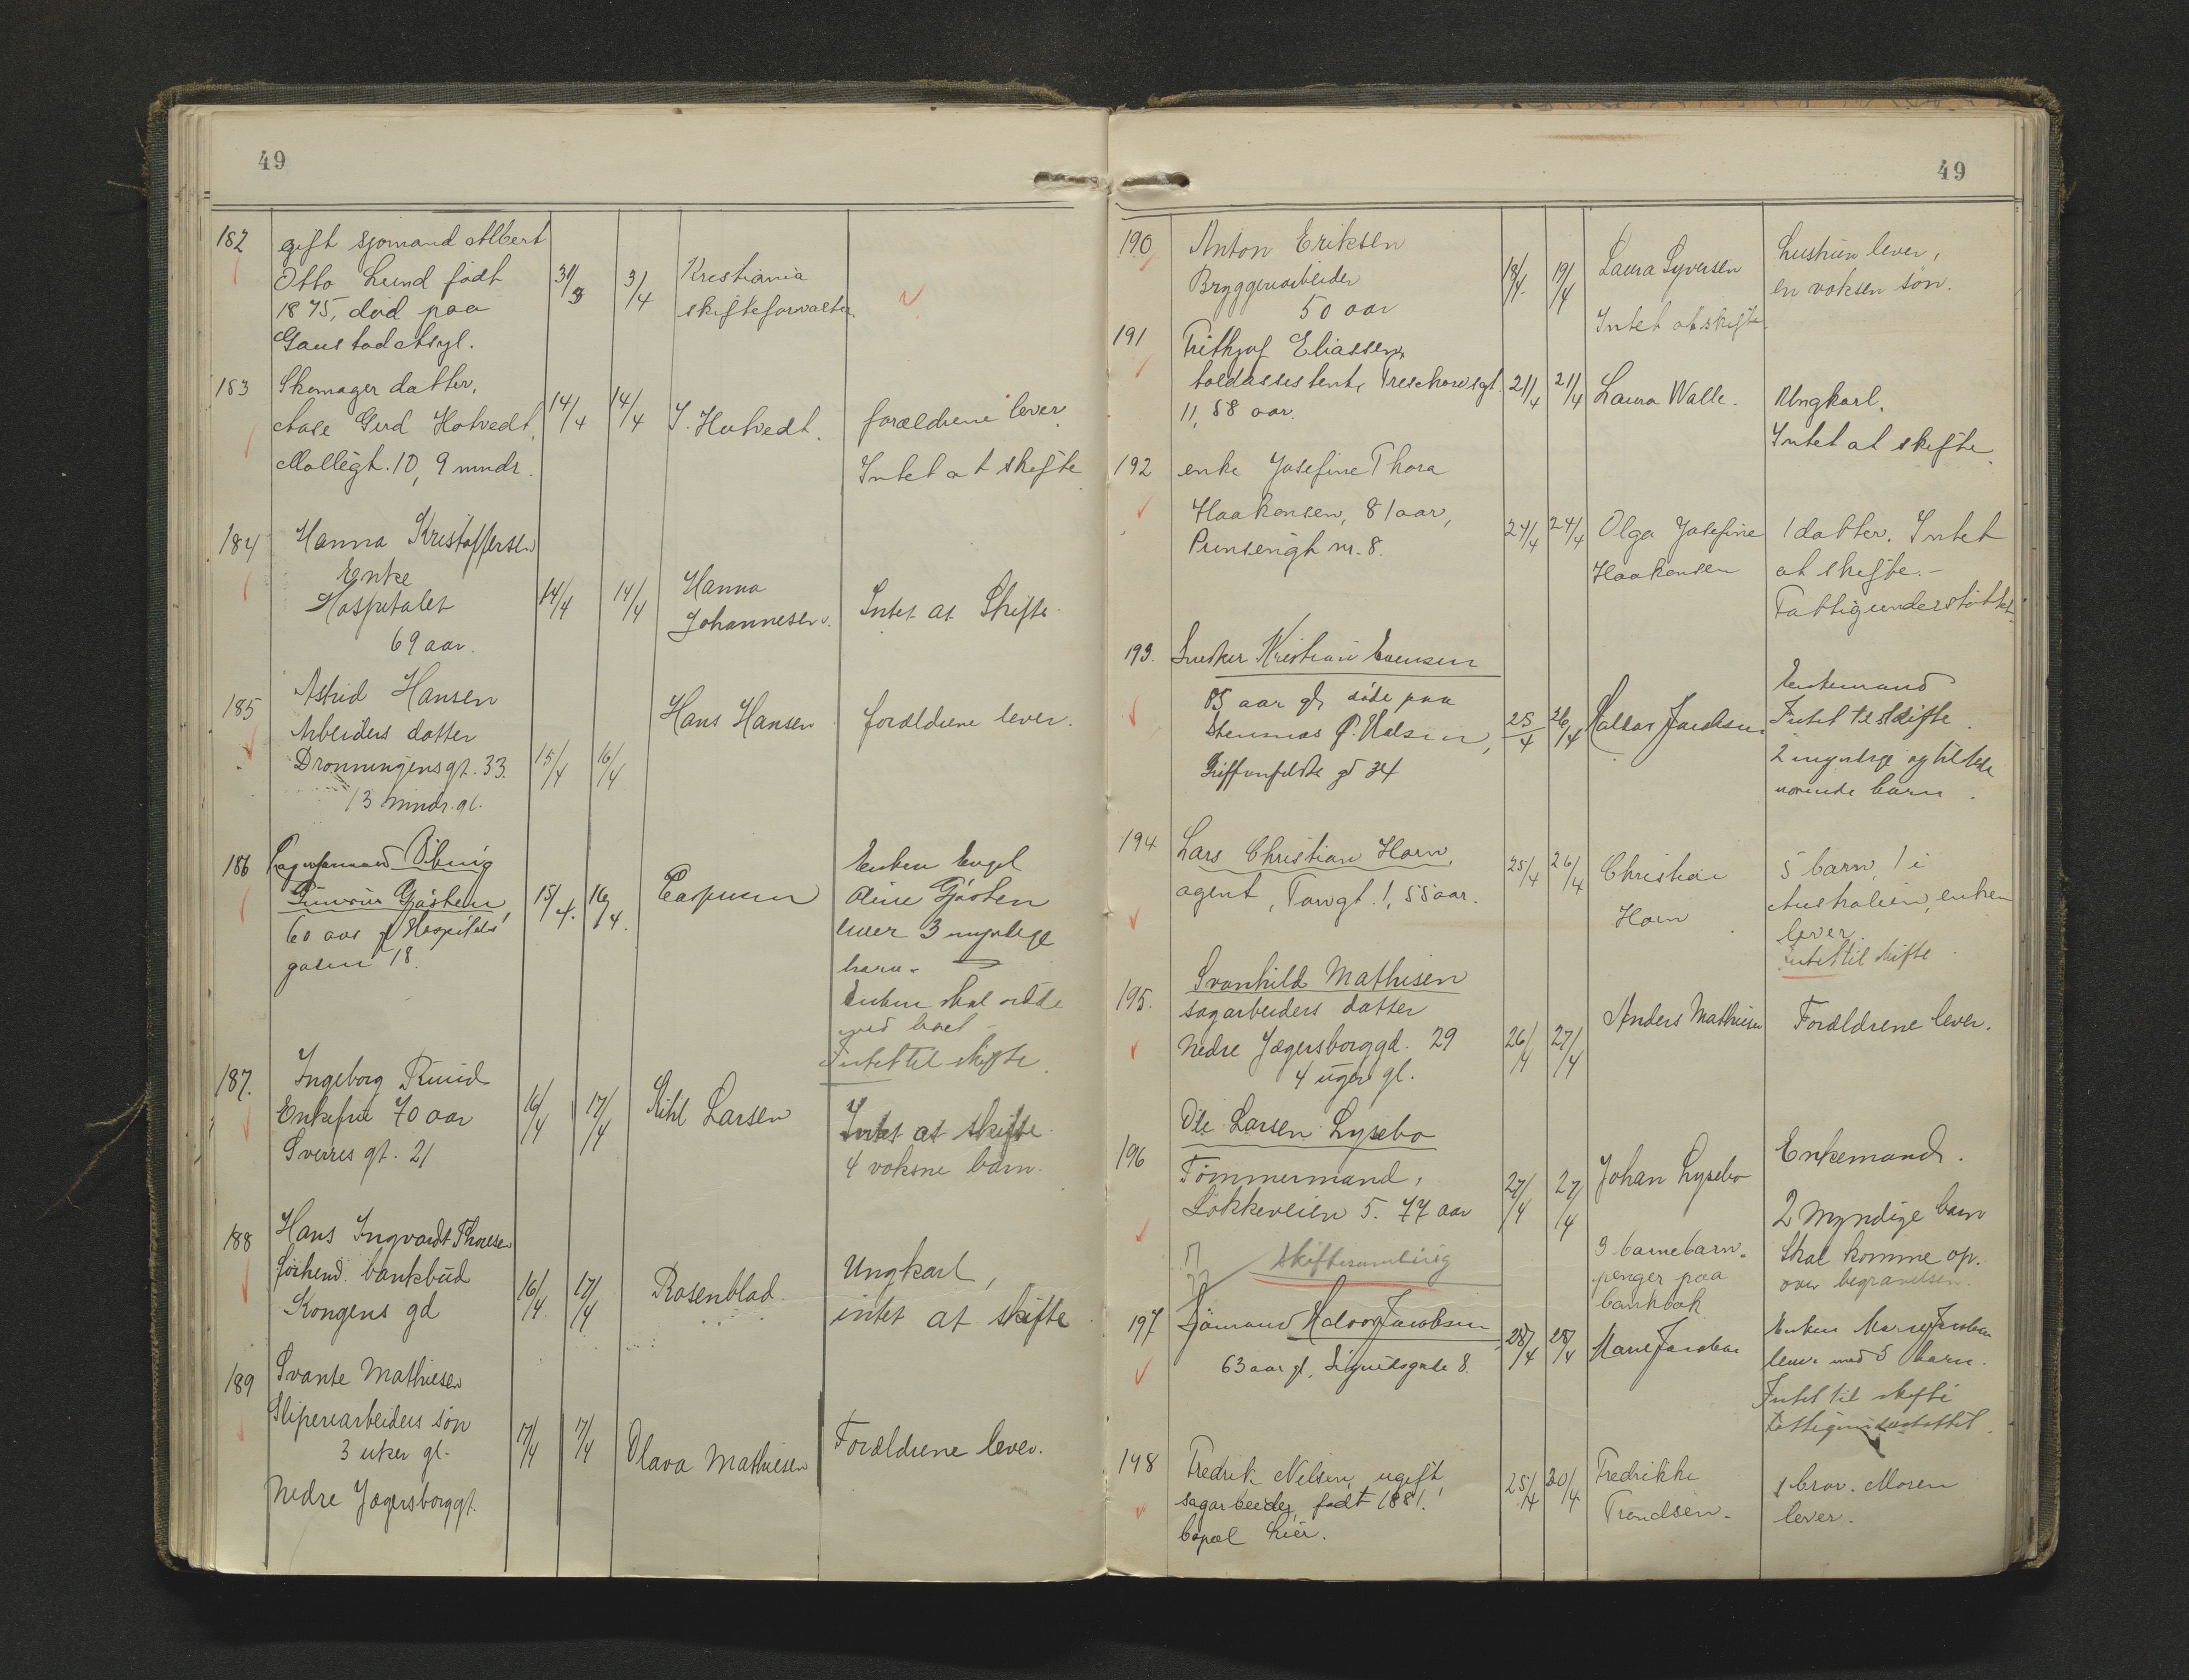 49
182
gift sjømand Albert
Otto Lund født
1875, død paa
Gaustad Asyl.
31/3
3/4
Kristiania
skifteforvalter
183
Skomager datter,
Aase Gerd Hotvedt,
Møllegt. 10, 9 mndr.
14/4
14/4
J. Hotvedt.
forældrene lever.
Intet at skifte
184
Hanna Kristoffersen
Enke
Hospitalet
69 aar.
14/4
14/4
Hanna
Johannesen.
Intet at Skifte.
185
Astrid Hansen
Arbeiders datter
Dronningensgt. 33.
13 mndr. gl.
15/4
16/4
Hans Hansen
forældrene lever.
186
60 aar gl Hospitals
gaten 18.
15/4.
16/4.
Enken Engel
Oline
lever 3 myndige
barn.
Enken skal sidde
med boet
Intet til skifte.
187.
Ingeborg Ruud
Enkefru 70 aar
Sverres gt. 21
16/4
17/4
Larsen
Intet at skifte
4 voksne barn.
188
Hans Ingvardt Thoresen
forhend. bankbud
Kongens gd
16/4.
17/4
Rosenblad.
Ungkarl,
intet at skifte
189
Svante Mathiesen
Sliperiarbeiders søn
3 uker gl.
Nedre Jægersborggt.
17/4
17/4
Olava Mathiesen
Forældrene lever.
49
190
Anton Eriksen
Bryggeriarbeider
50 aar
18/4.
19/4
Laura Syversen
Intet at skifte.
Hustruen lever,
en voksen søn.
191
Frithjof Eliassen,
toldassistent, Treschowsgt.
11, 58 aar.
21/4
21/4
Laura Walle.
Ungkarl.
Intet at skifte.
192
enke Josefine Thora
Haakensen, 81 aar,
Prinsengt nr. 8.
24/4
24/4
Olga Josefine
Haakensen
1 datter. Intet
at skifte.-
Fattigunderstøttet.
193.
Snedker Kristian Evensen
85 aar gl døde paa
Griffenfeldts gd 34
25/4
26/4
Enkemand
Intet til skifte.
2 myndige og tilstede
værende barn.
194
Lars Christian Horn,
agent, Torvgt. 1, 55 aar.
25/4
26/4
Christian
Horn
5 barn, 1 i
Australien, enken
lever.
intet til skifte
195.
Svanhild Mathisen
sagarbeiders datter
Nedre Jægersborggd. 29
4 uger gl.
26/4
27/4
Anders Mathiesen
Forældrene lever.
196
Ole Larsen Lysebo
Tømmermand,
Løkkeveien 5. 77 aar
skiftesamling
27/4
27/4
Johan Lysebo
3 barnebarn.
penger paa
bankbok
Enkemand.
2 Myndige barn
Skal komme op.
over begravelsen.
197
Sjømand Halvor Jacobsen
63 aar gl, Sigurdsgade 8.
28/4
28/4
Marie Jacobsen
Enken Marie Jacobsen
lever med 5 barn.
Intet til skifte
Fattigunderstøttet.
198
Fredrik Nelsen, ugift,
sagarbeider, født 1881.
bopæl her.
25/4
30/4
Fredrikke
Trondsen.
1 bror. Moren
lever.